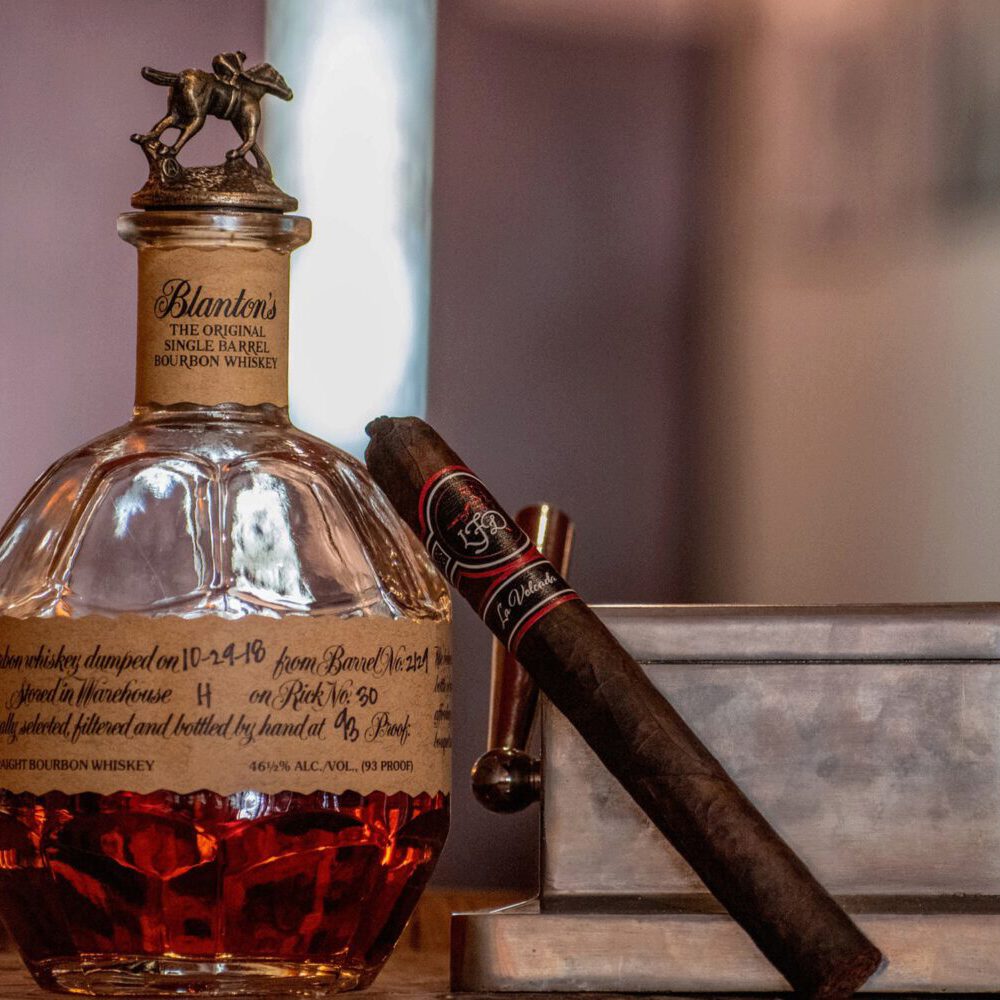 Blanton's
THE ORIGINAL
SINGLE BARREL
BOURBON WHISKEY
LFD
La Volcada
whiskey dumped on 10-29-18 from Barrel No: 2129
Stored in Warehouse H on Rick No: 30
selected, filtered and bottled by hand at 93 Proof:
BOURBON WHISKEY 46½% ALC./VOL., (93 PROOF)